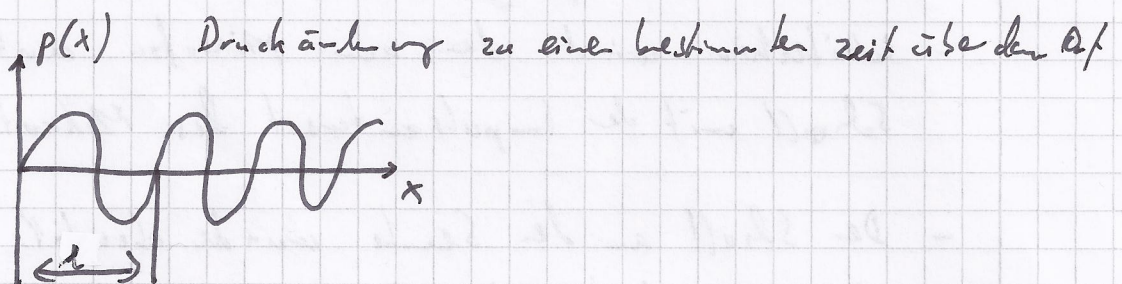 p(x) Druckänderung zu einer bestimmten zeit über den Ort
x
λ